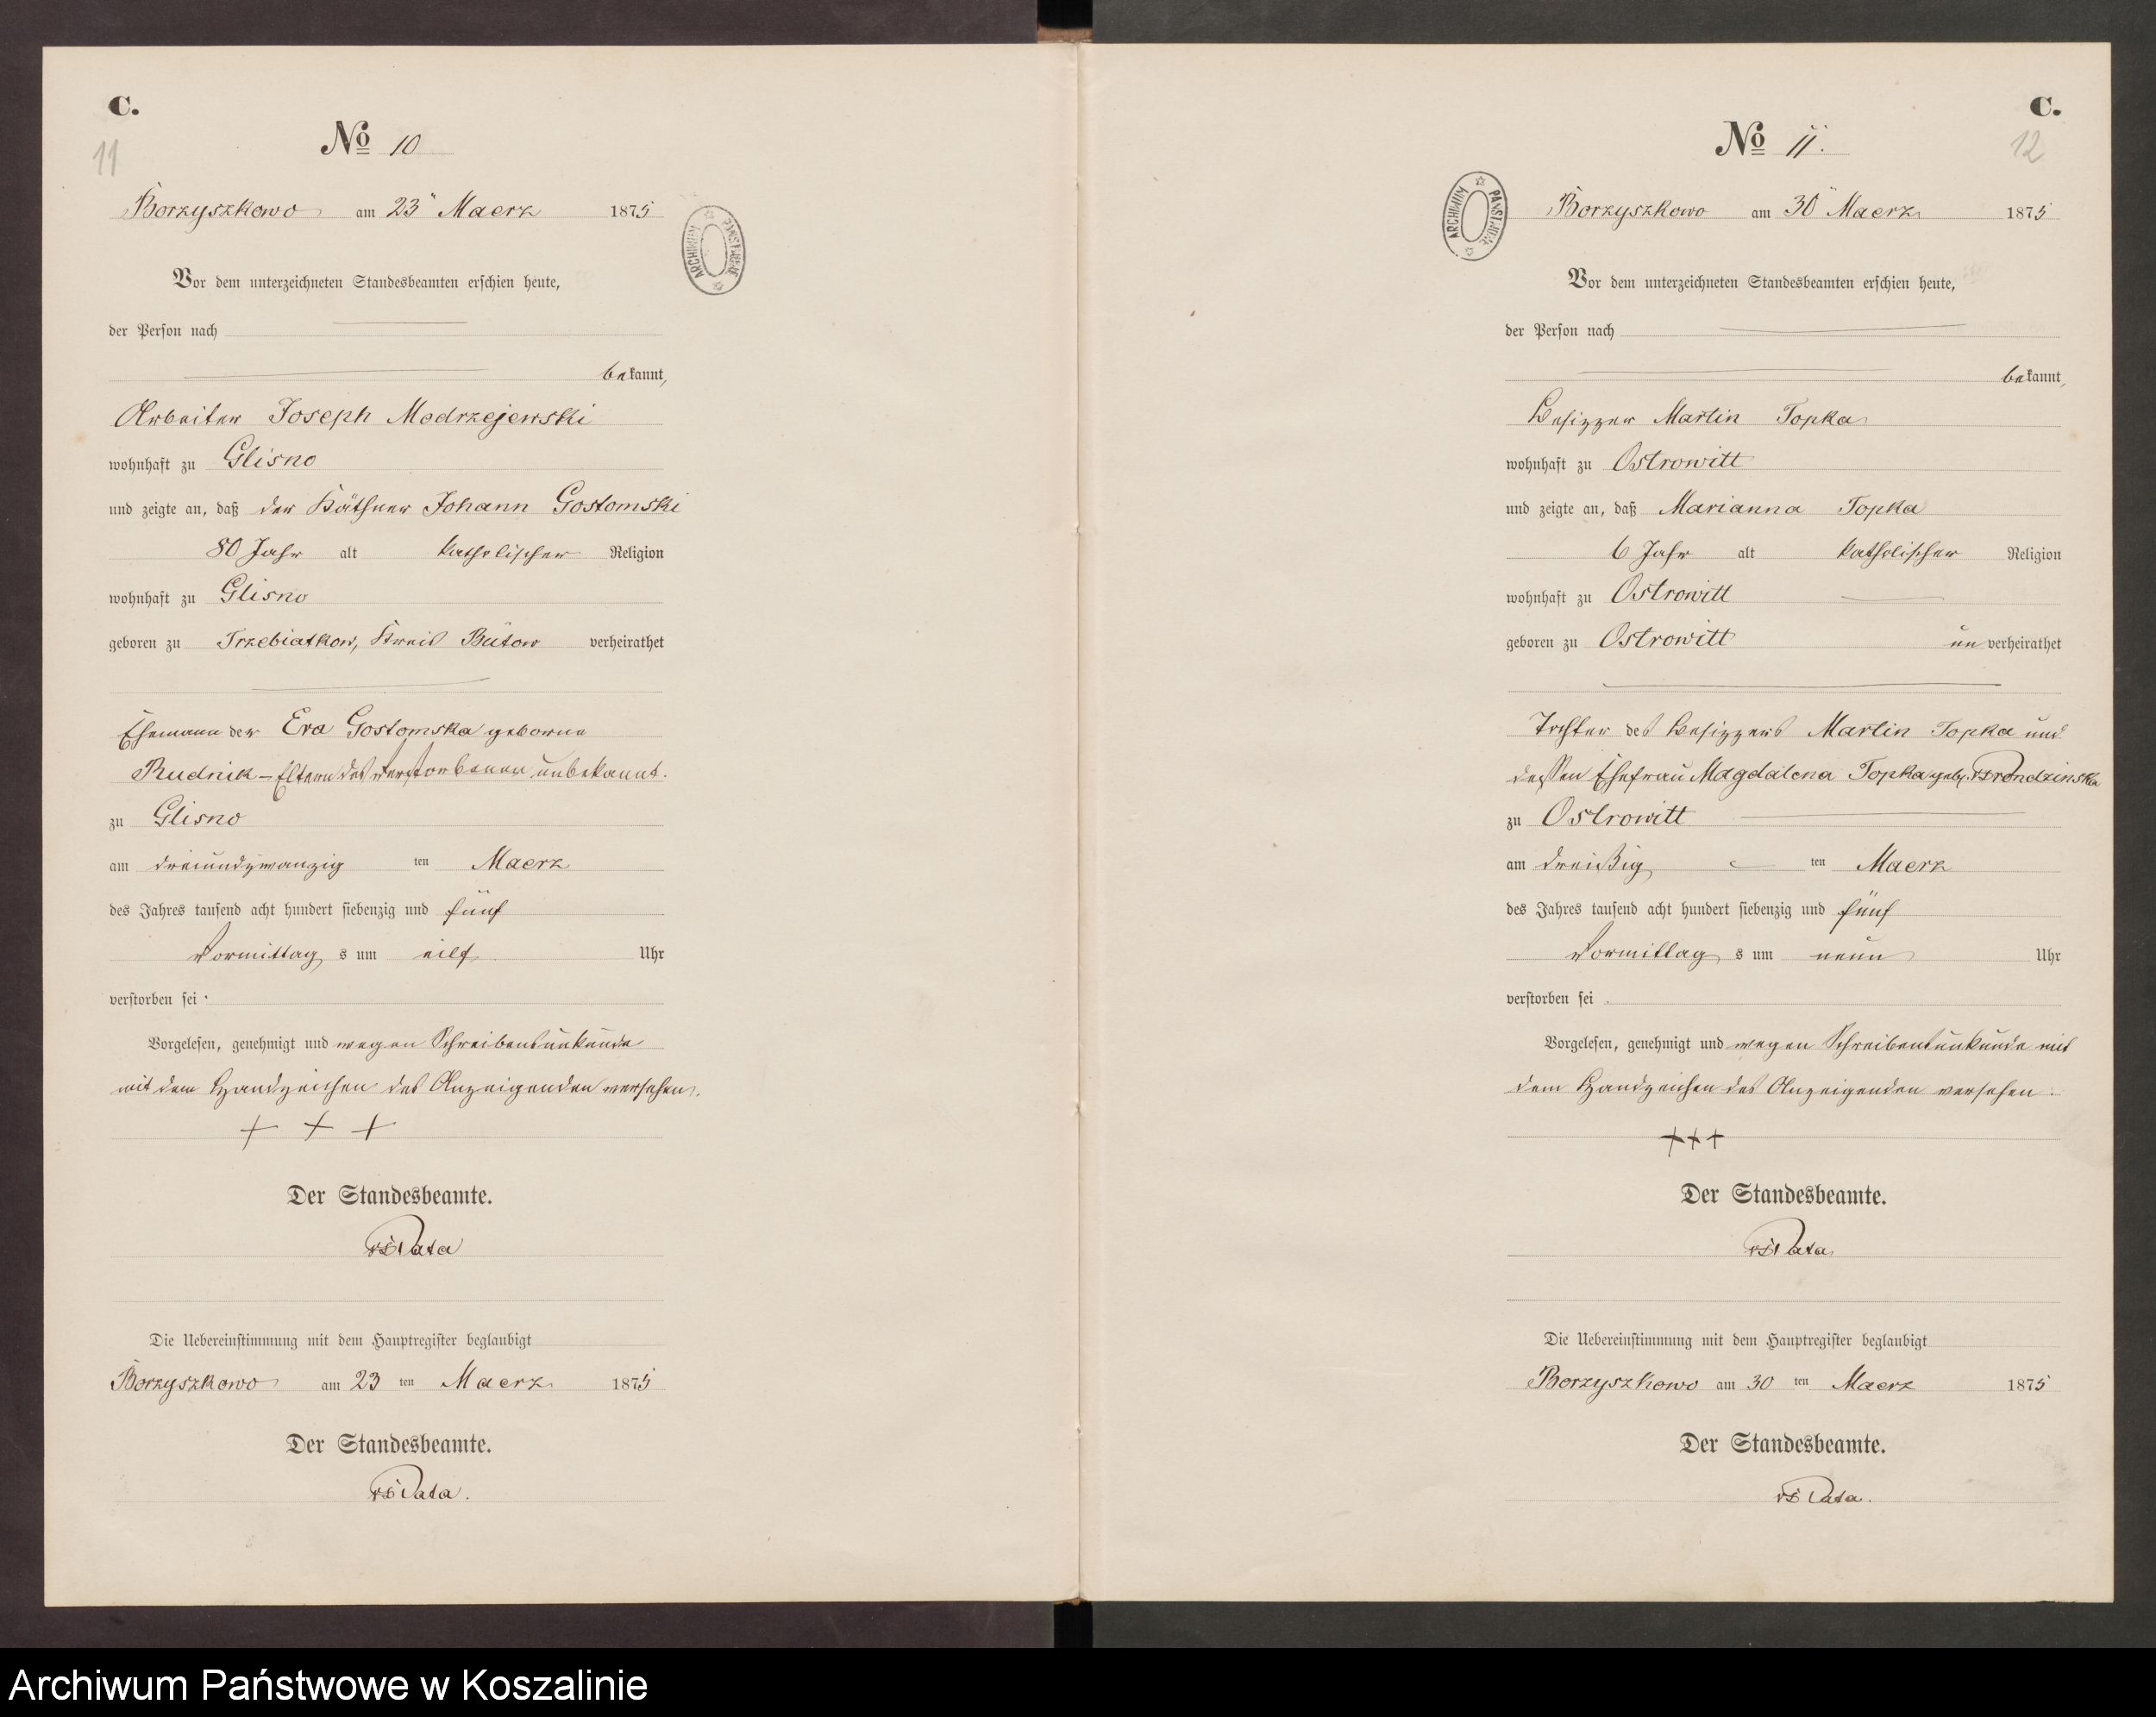 C.
11
No 10
Borzyszkowo am 23" Maerz 1875
ARCHIWUM PAŃSTWOWE
Vor dem unterzeichneten Standesbeamten erschien heute,
der Person nach
bekannt,
Arbeiter Joseph Modrzejewski
wohnhaft zu Glisno
und zeigte an, daß der Käthner Johann Gostomski
80 Jahr alt katholischer Religion
wohnhaft zu Glisno
geboren zu Trzebiatkow, Kreis Bütow verheirathet
Ehemann der Eva Gostomska geborne
Rudnik - Eltern des Verstorbenen unbekannt.
zu Glisno
am dreiundzwanzig ten Maerz
des Jahres tausend acht hundert siebenzig und fünf
Vormittag s um eilf Uhr
verstorben sei.
Vorgelesen, genehmigt und wegen Schreibensunkunde
mit dem Handzeichen des Anzeigenden versehen.
+ + +
Der Standesbeamte.
Die Uebereinstimmung mit dem Hauptregister beglaubigt
Borzyszkowo am 23 ten Maerz 1875
Der Standesbeamte.
C.
12
No 11.
Borzyszkowo am 30" Maerz 1875
ARCHIWUM PAŃSTWOWE
Vor dem unterzeichneten Standesbeamten erschien heute,
der Person nach
bekannt,
Besizzer Martin Topka
wohnhaft zu Ostrowitt
und zeigte an, daß Marianna Topka
6 Jahr alt katholischer Religion
wohnhaft zu Ostrowitt
geboren zu Ostrowitt unverheirathet
Tochter des Besizzers Martin Topka und
dessen Ehefrau Magdalena Topka geb.
zu Ostrowitt
am dreißig ten Maerz
des Jahres tausend acht hundert siebenzig und fünf
Vormittag s um neun Uhr
verstorben sei.
Vorgelesen, genehmigt und wegen Schreibensunkunde mit
dem Handzeichen des Anzeigenden versehen.
+++
Der Standesbeamte.
Die Uebereinstimmung mit dem Hauptregister beglaubigt
Borzyszkowo am 30 ten Maerz 1875
Der Standesbeamte.
Archiwum Państwowe w Koszalinie